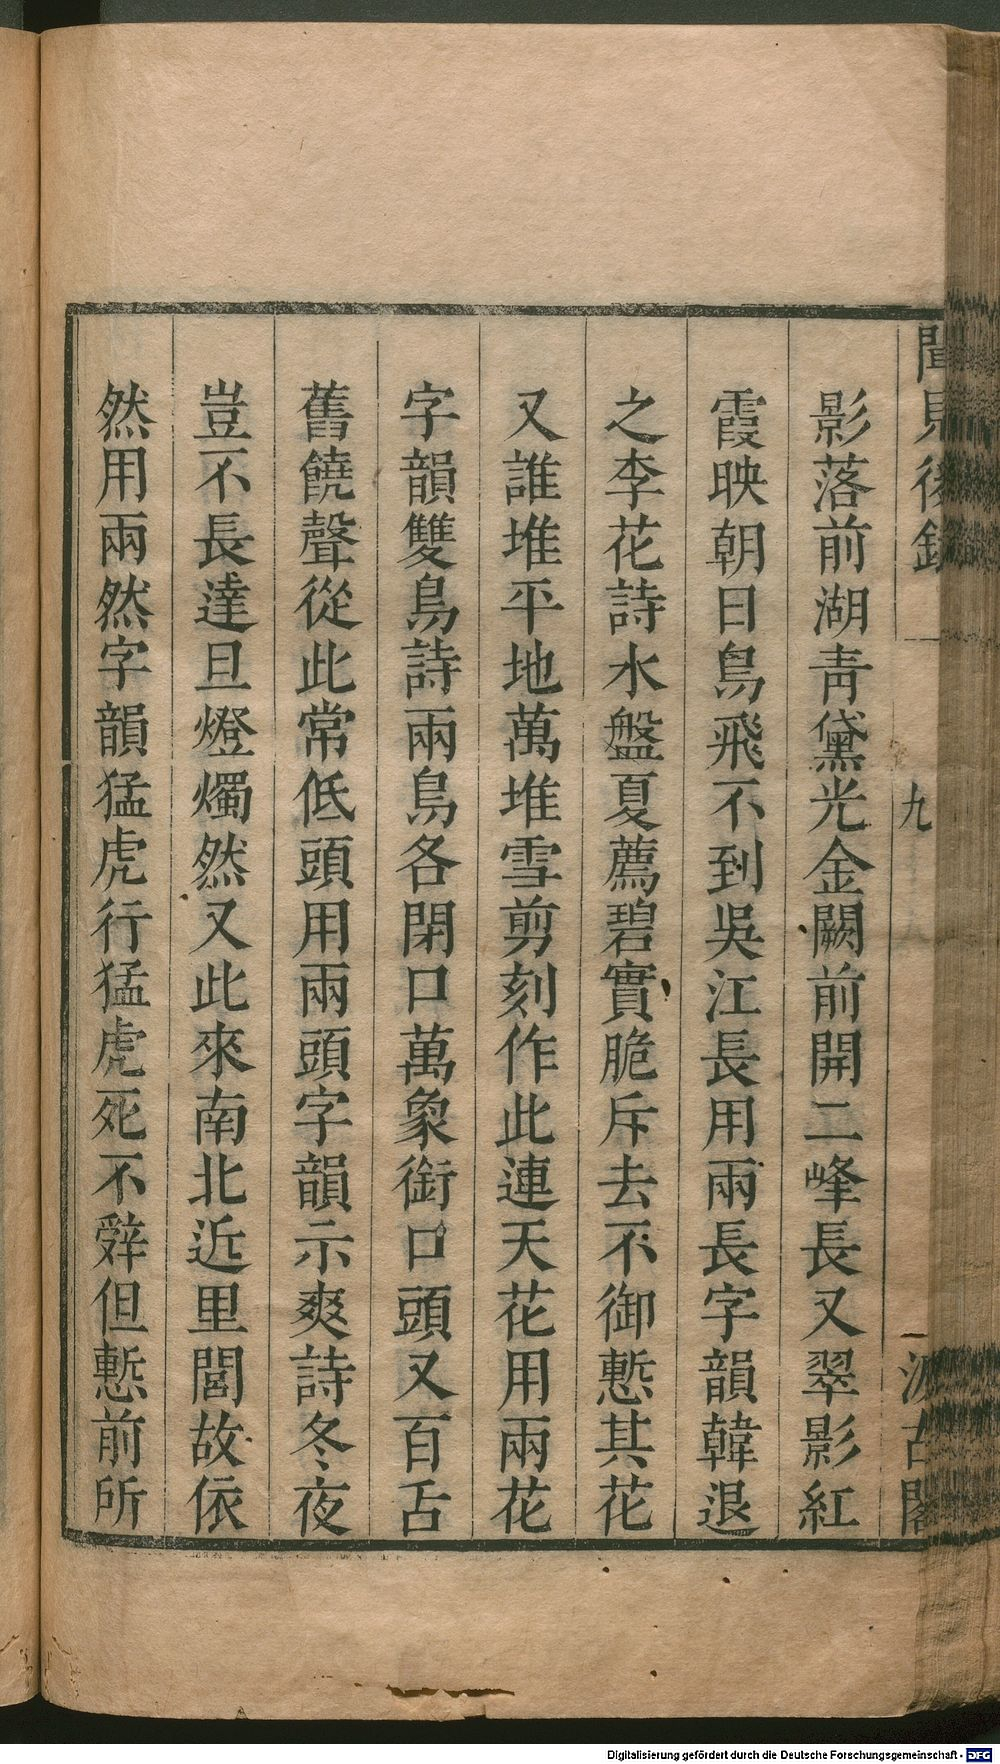 聞見後錄
九
汲古閣
影落前湖靑黛光金闕前開二峰長又翠影紅
霞映朝日鳥飛不到吳江長用兩長字韻韓退
之李花詩水盤夏薦碧實脆斥去不御慙其花
又誰堆平地萬堆雪剪刻作此連天花用兩花
字韻雙鳥詩兩鳥各閉口萬象銜口頭又百舌
舊饒聲從此常低頭用兩頭字韻示爽詩冬夜
豈不長達旦燈燭然又此來南北近里閭故依
然用兩然字韻猛虎行猛虎死不辤但慙前所
Digitalisierung gefördert durch die Deutsche Forschungsgemeinschaft - DFG